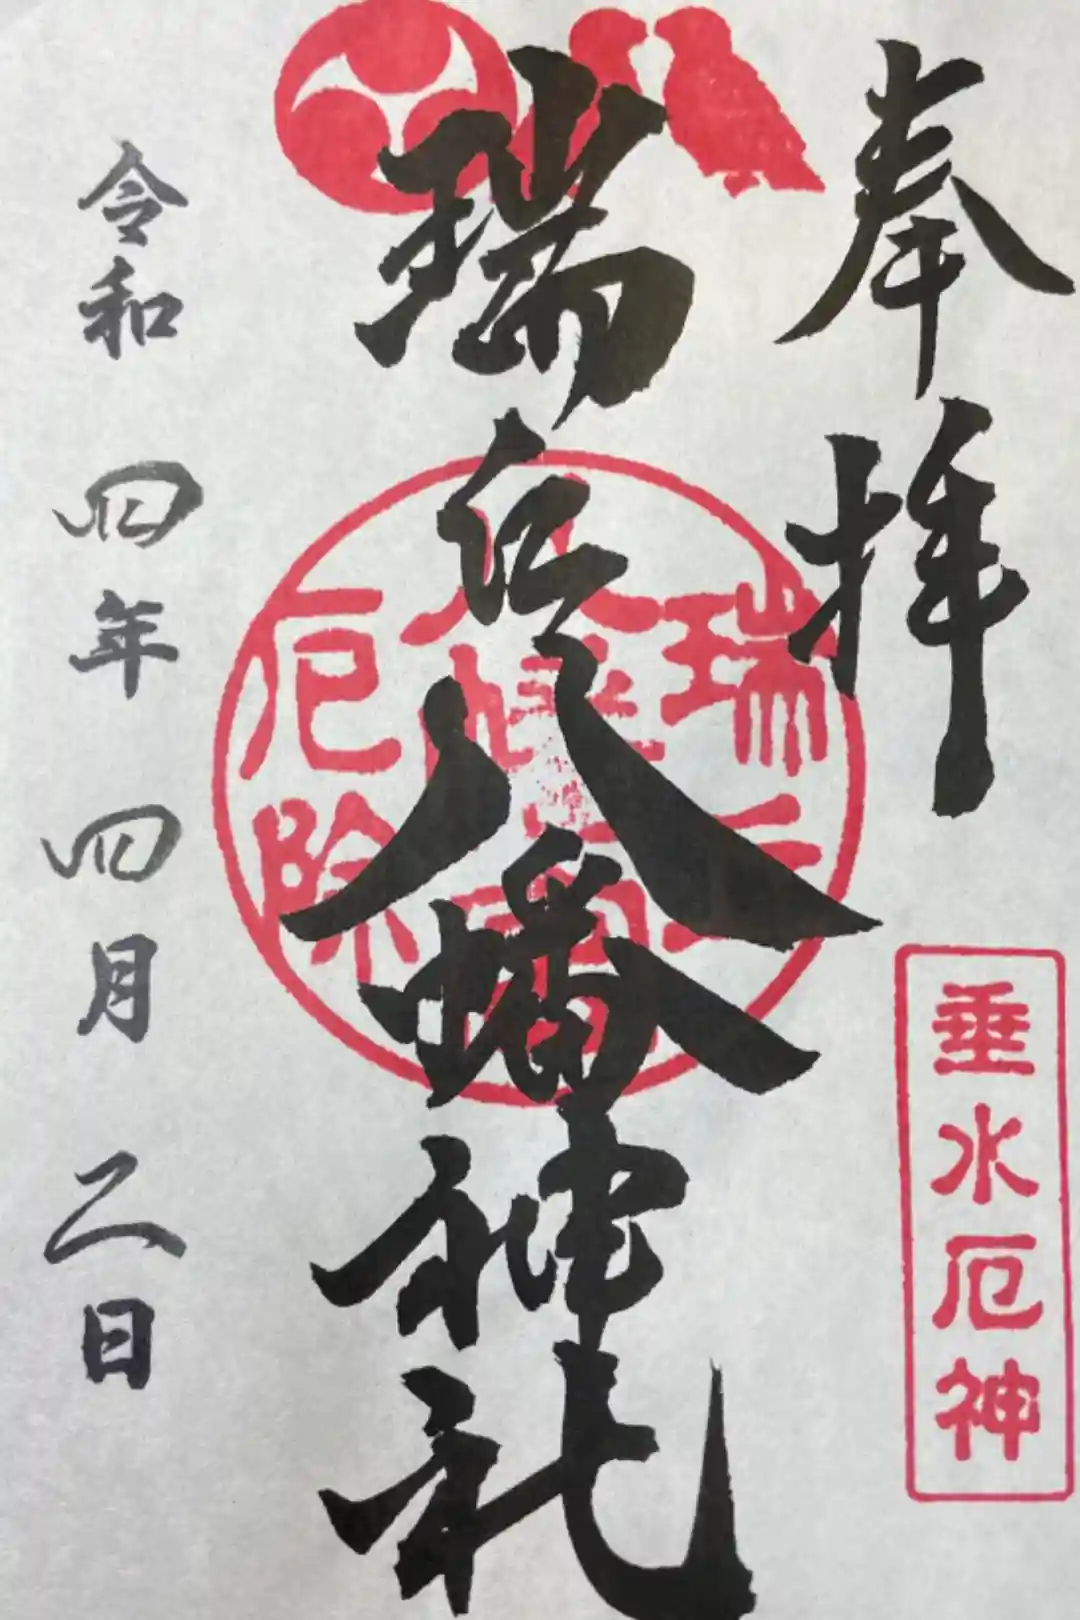 奉拝
垂水厄神
瑞丘八幡神社
瑞丘
八幡宮
厄除
令和四年四月二日